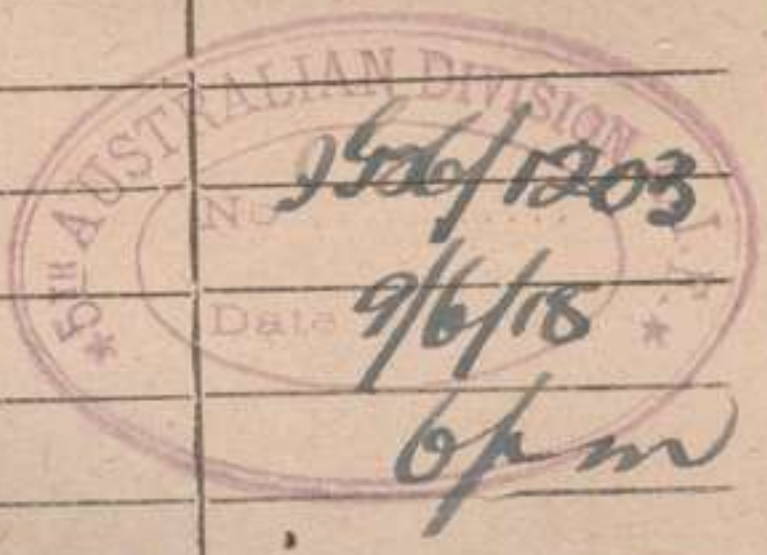 * 5TH AUSTRALIAN DIVISION A.I.F. *
No /1203
Date 9/6/18
6pm